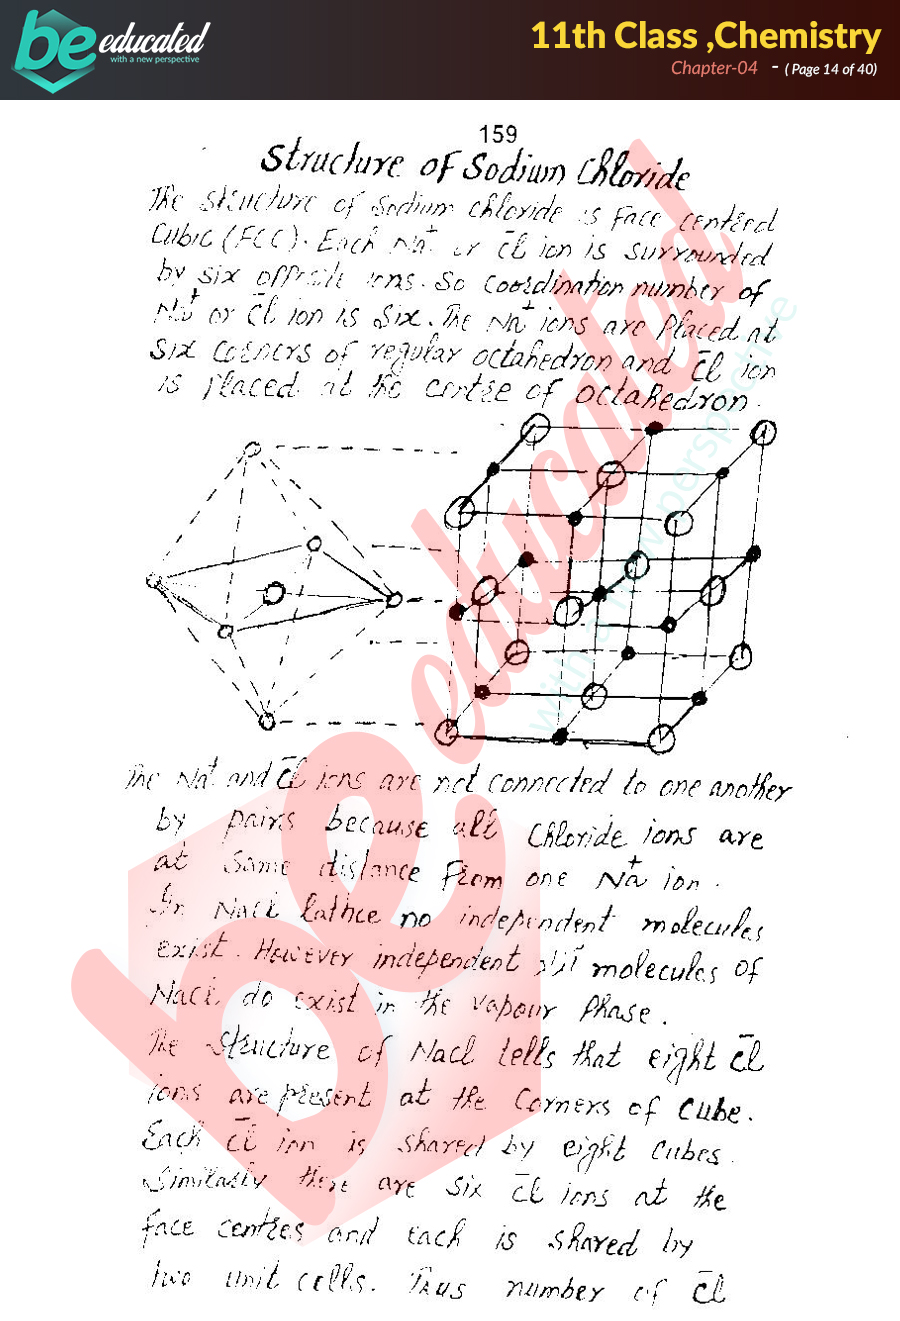 be educated
with a new perspective
11th Class ,Chemistry
Chapter-04 - ( Page 14 of 40)
159
Structure of Sodium Chloride
The structure of sodium chloride is Face centred
Cubic (FCC). Each Na⁺ or Cl⁻ ion is surrounded
by six opposite ions. So coordination number of
Na⁺ or Cl⁻ ion is six. The Na⁺ ions are placed at
six corners of regular octahedron and Cl⁻ ion
is placed at the centre of octahedron.
The Na⁺ and Cl⁻ ions are not connected to one another
by pairs because all chloride ions are
at same distance from one Na⁺ ion.
In NaCl lattice no independent molecules
exist. However independent molecules of
NaCl do exist in the vapour phase.
The structure of NaCl tells that eight Cl⁻
ions are present at the corners of cube.
Each Cl⁻ ion is shared by eight cubes.
Similarly there are six Cl⁻ ions at the
face centres and each is shared by
two unit cells. Thus number of Cl⁻
be educated
with a new perspective